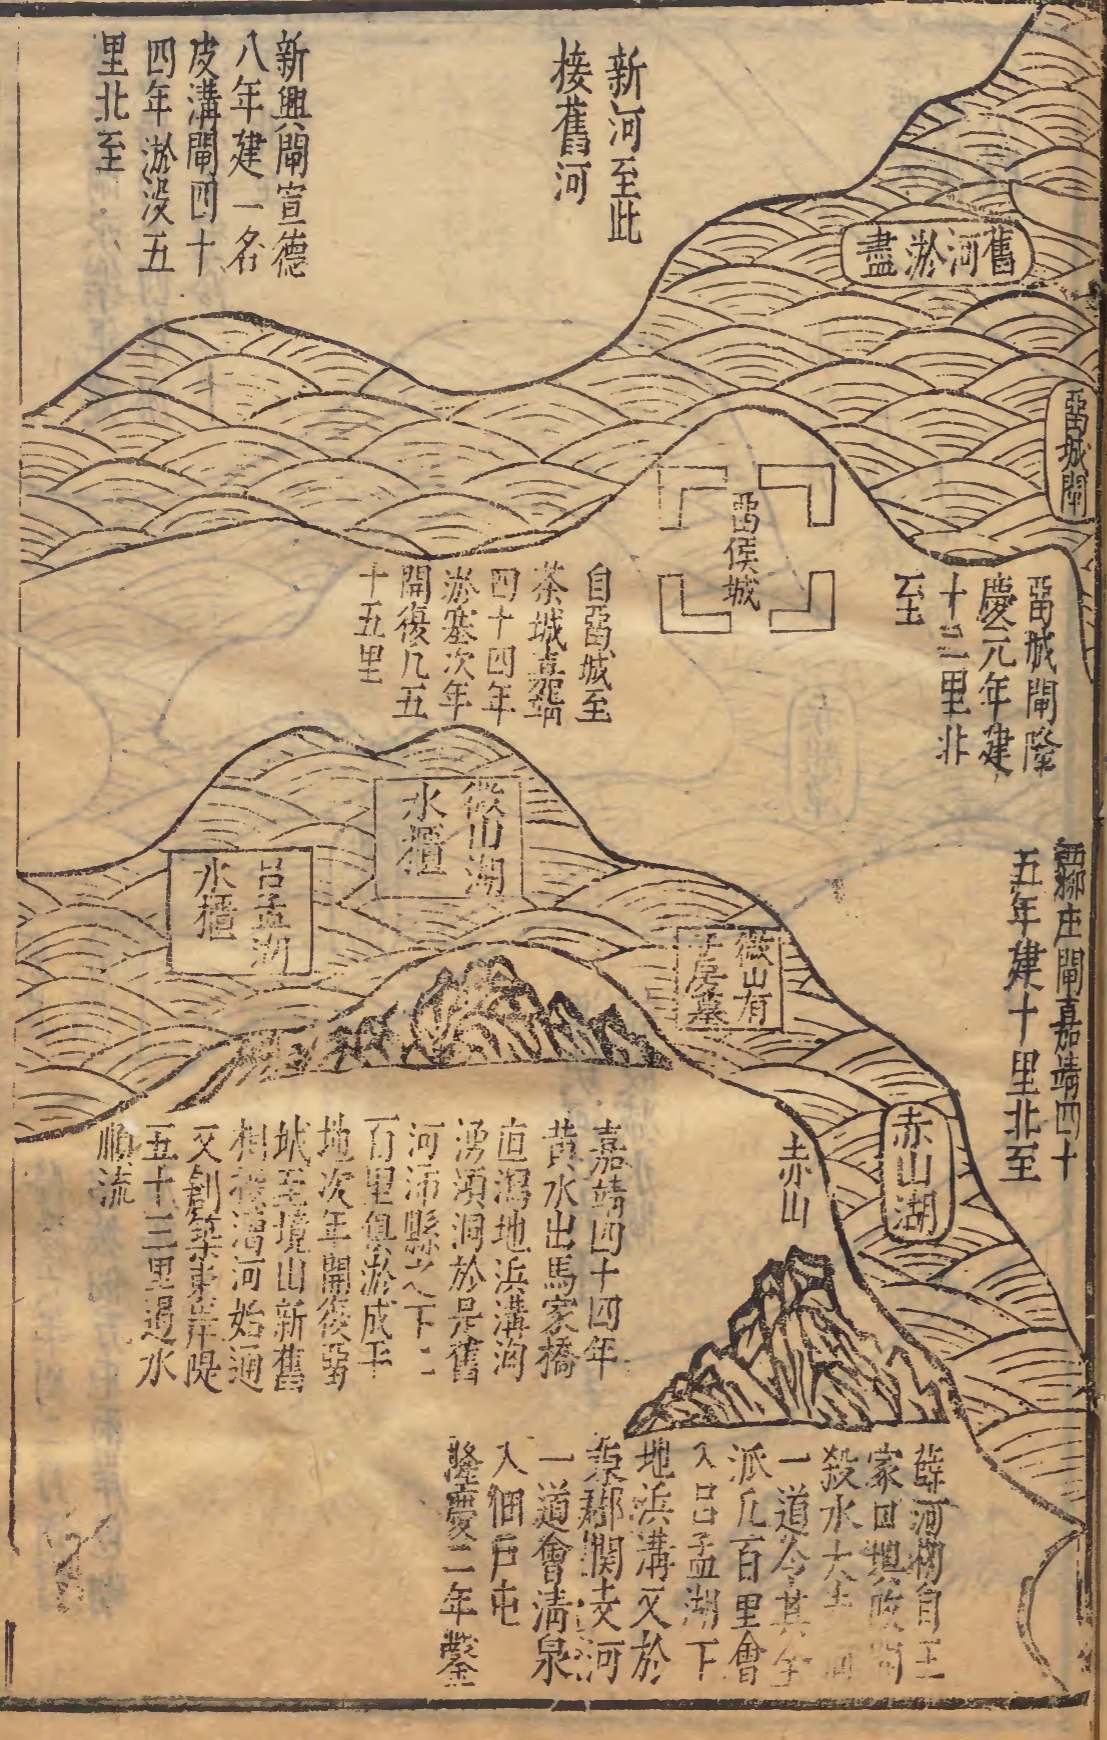 新河至此
接舊河
新興閘宣德
八年建一名
皮溝閘四十
四年淤沒五
里北至
舊河淤盡
留城閘
留侯城
留城閘隆
慶元年建
十三里北
至
自留城至
茶城嘉靖
四十四年
淤塞次年
開復凡五
十五里
微山湖
水櫃
呂孟湖
水櫃
微山有
子房墓
柳庄閘嘉靖四十
五年建十里北至
赤山湖
赤山
嘉靖四十四年
黃水出馬家橋
直瀉地浜溝洶
湧澒洞於是舊
河沛縣之下二
百里俱淤成平
地次年開復留
城至境山新舊
相接漕河始通
又創築東岸隄
五十三里遏水
順流
薛河物自王
家口
殺水大
一道今其
派凡百里會
入呂孟湖下
地浜溝又於
東邵開支河
一道會清泉
入佃戶屯
隆慶二年鑿